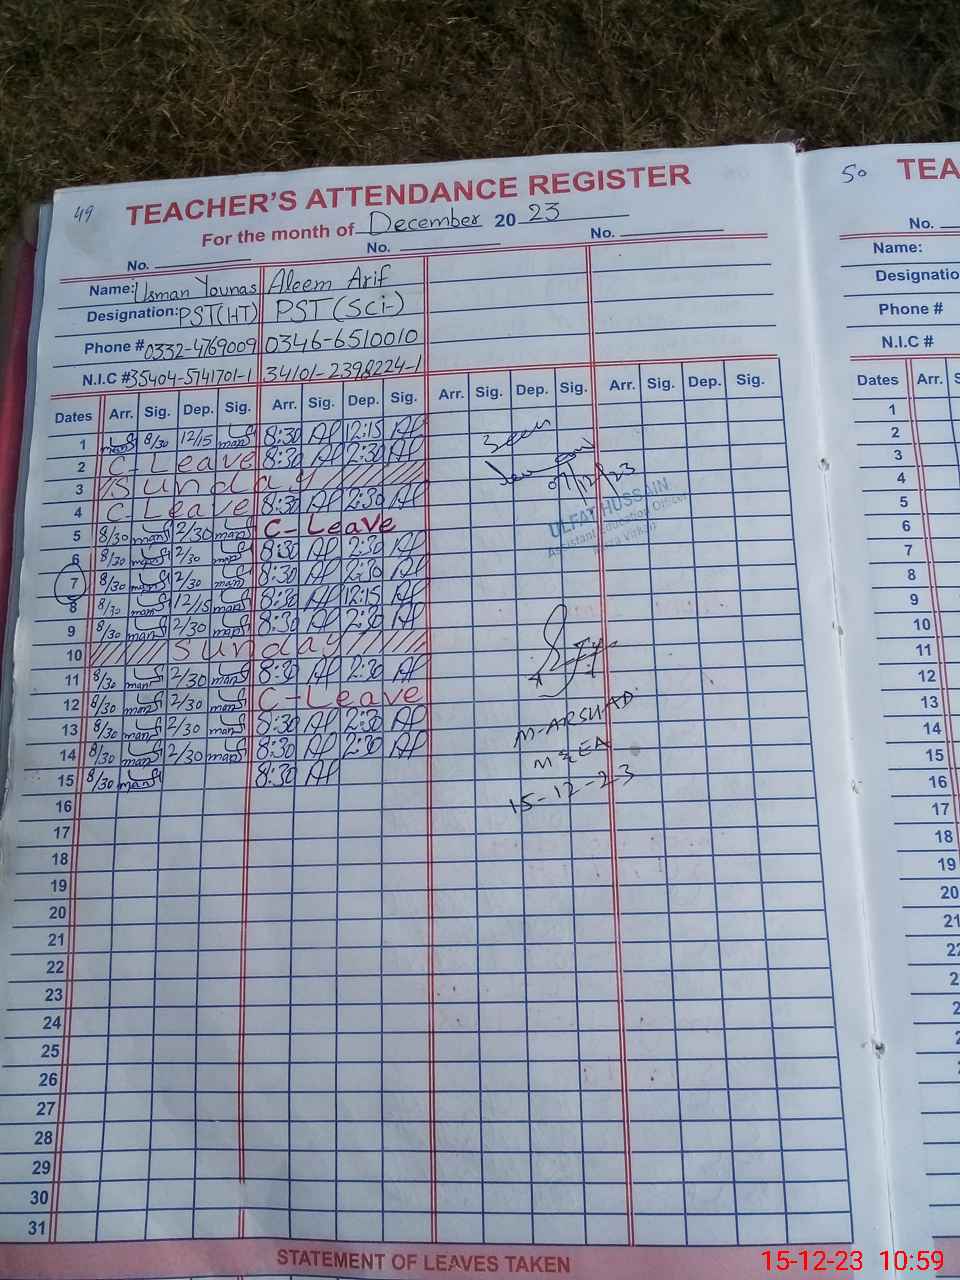 49
TEACHER'S ATTENDANCE REGISTER
For the month of December 20 23
No. No. No.
Name: Usman Younas Aleem Arif
Designation: PST(HT) PST(Sci-)
Phone # 0332-4769009 0346-6510010
N.I.C # 35404-5741701-1 34101-2398224-1
Dates Arr. Sig. Dep. Sig. Arr. Sig. Dep. Sig. Arr. Sig. Dep. Sig. Arr. Sig. Dep. Sig.
1 8/30 12/15 8:30 12:15
2 C-Leave 8:30 2:30
3 Sunday
4 C-Leave 8:30 2:30
5 8/30 2/30 C-Leave
6 8/30 2/30 8:30 2:30
7 8/30 2/30 8:30 2:30
8 8/30 12/15 8:30 12:15
9 8/30 2/30 8:30 2:30
10 Sunday
11 8/30 2/30 8:30 2:30
12 8/30 2/30 C-Leave
13 8/30 2/30 8:30 2:30
14 8/30 2/30 8:30 2:30
15 8/30 8:30
16
17
18
19
20
21
22
23
24
25
26
27
28
29
30
31
Seen
07/12/23
ULFAT HUSSAIN
Assistant Education Officer
M-ARSHAD
MEA
15-12-23
STATEMENT OF LEAVES TAKEN
50
TEA
No.
Name:
Designatio
Phone #
N.I.C #
Dates Arr. S
1
2
3
4
5
6
7
8
9
10
11
12
13
14
15
16
17
18
19
20
21
15-12-23 10:59